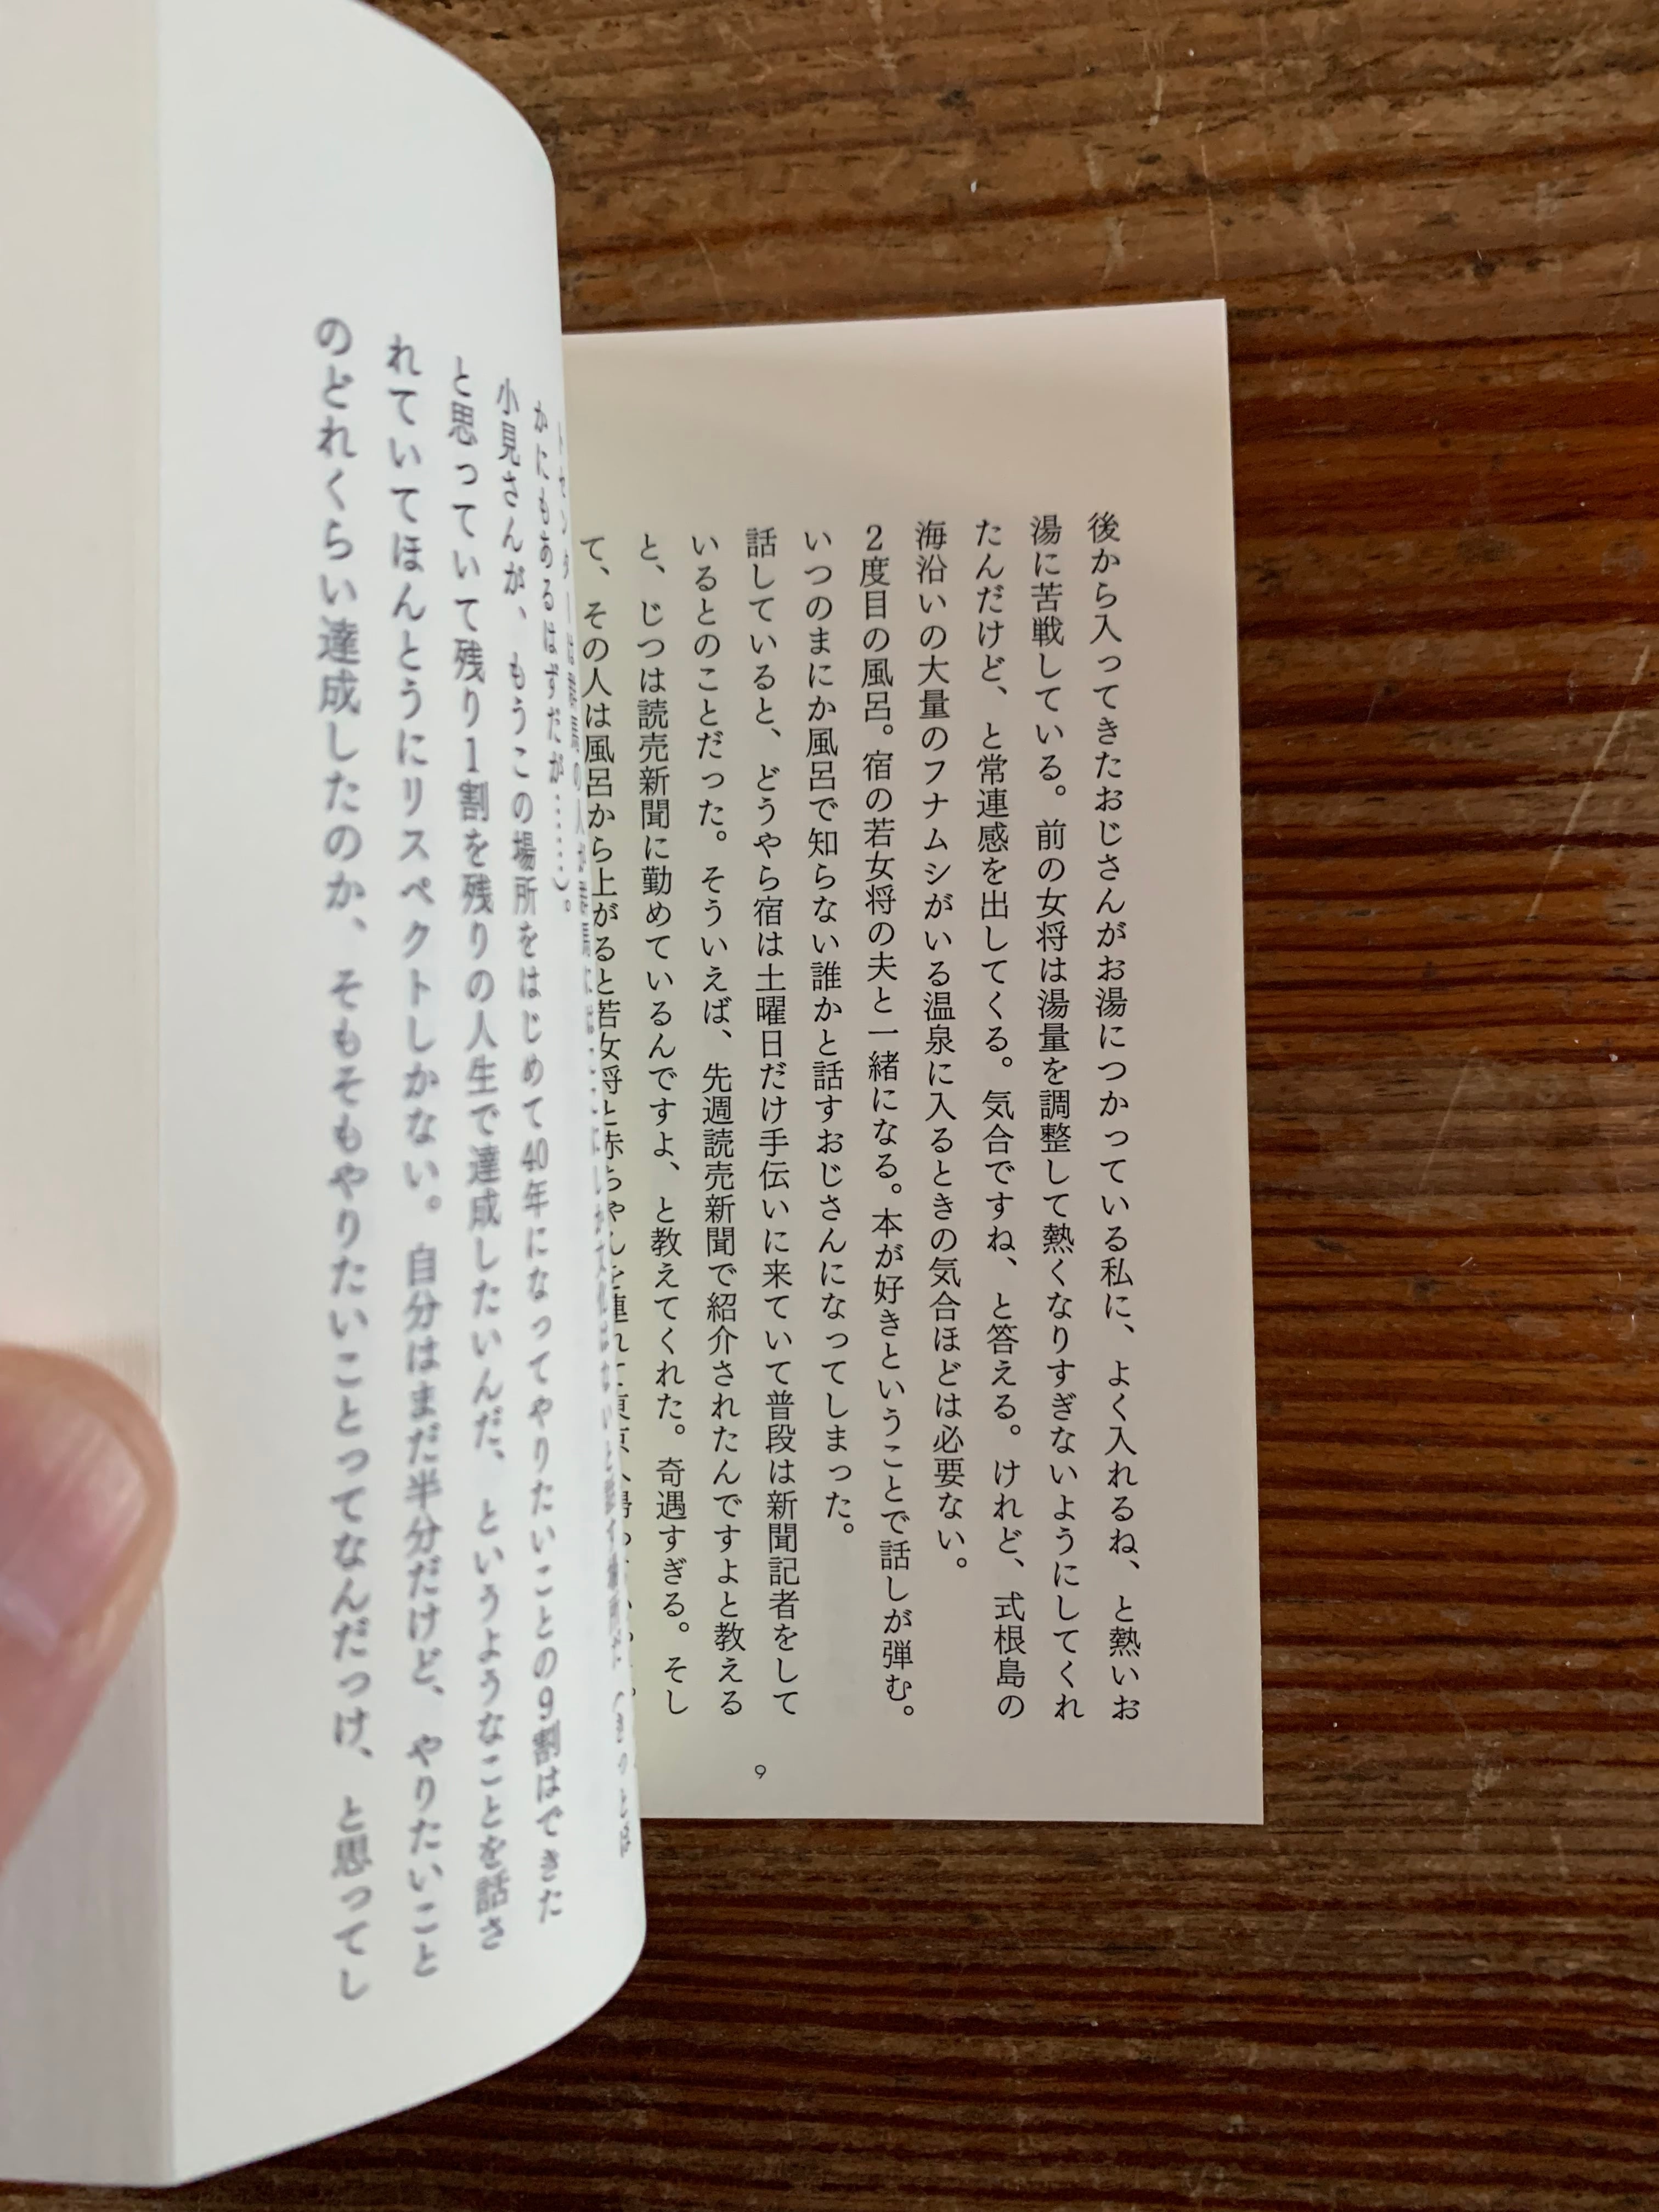 後から入ってきたおじさんがお湯につかっている私に、よく入れるね、と熱いお
湯に苦戦している。前の女将は湯量を調整して熱くなりすぎないようにしてくれ
たんだけど、と常連感を出してくる。気合ですね、と答える。けれど、式根島の
海沿いの大量のフナムシがいる温泉に入るときの気合ほどは必要ない。
2度目の風呂。宿の若女将の夫と一緒になる。本が好きということで話しが弾む。
いつのまにか風呂で知らない誰かと話すおじさんになってしまった。
話していると、どうやら宿は土曜日だけ手伝いに来ていて普段は新聞記者をして
いるとのことだった。そういえば、先週読売新聞で紹介されたんですよと教える
と、じつは読売新聞に勤めているんですよ、と教えてくれた。奇遇すぎる。そし
て、その人は風呂から上がると若女将と赤ちゃんを連れて東京へ
9
かにもあるはずだが……)。
小見さんが、もうこの場所をはじめて40年になってやりたいことの9割はできた
と思っていて残り1割を残りの人生で達成したいんだ、というようなことを話さ
れていてほんとうにリスペクトしかない。自分はまだ半分だけど、やりたいこと
のどれくらい達成したのか、そもそもやりたいことってなんだっけ、と思ってし